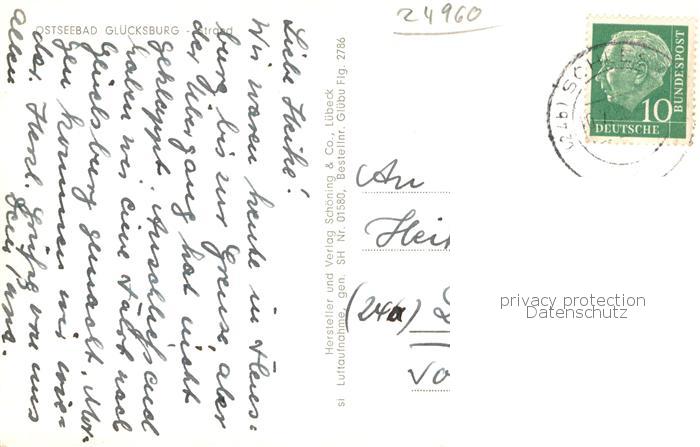 OSTSEEBAD GLÜCKSBURG - Strand
24960
Liebe Heike!
Wir waren heute in Flens-
burg bis zur Grenze, aber
der Übergang hat nicht
geklappt. Anschließend
haben wir eine Fahrt nach
Glücksburg gemacht. Mor-
gen kommen wir wie-
der. Herzl. Grüße von uns
allen
Hersteller und Verlag Schöning & Co., Lübeck
si Luftaufnahme, gen. SH Nr. 01580, Bestellnr. Glübu Flg. 2786
DEUTSCHE
BUNDESPOST
10
An
Hei
(24a)
vo
privacy protection
Datenschutz